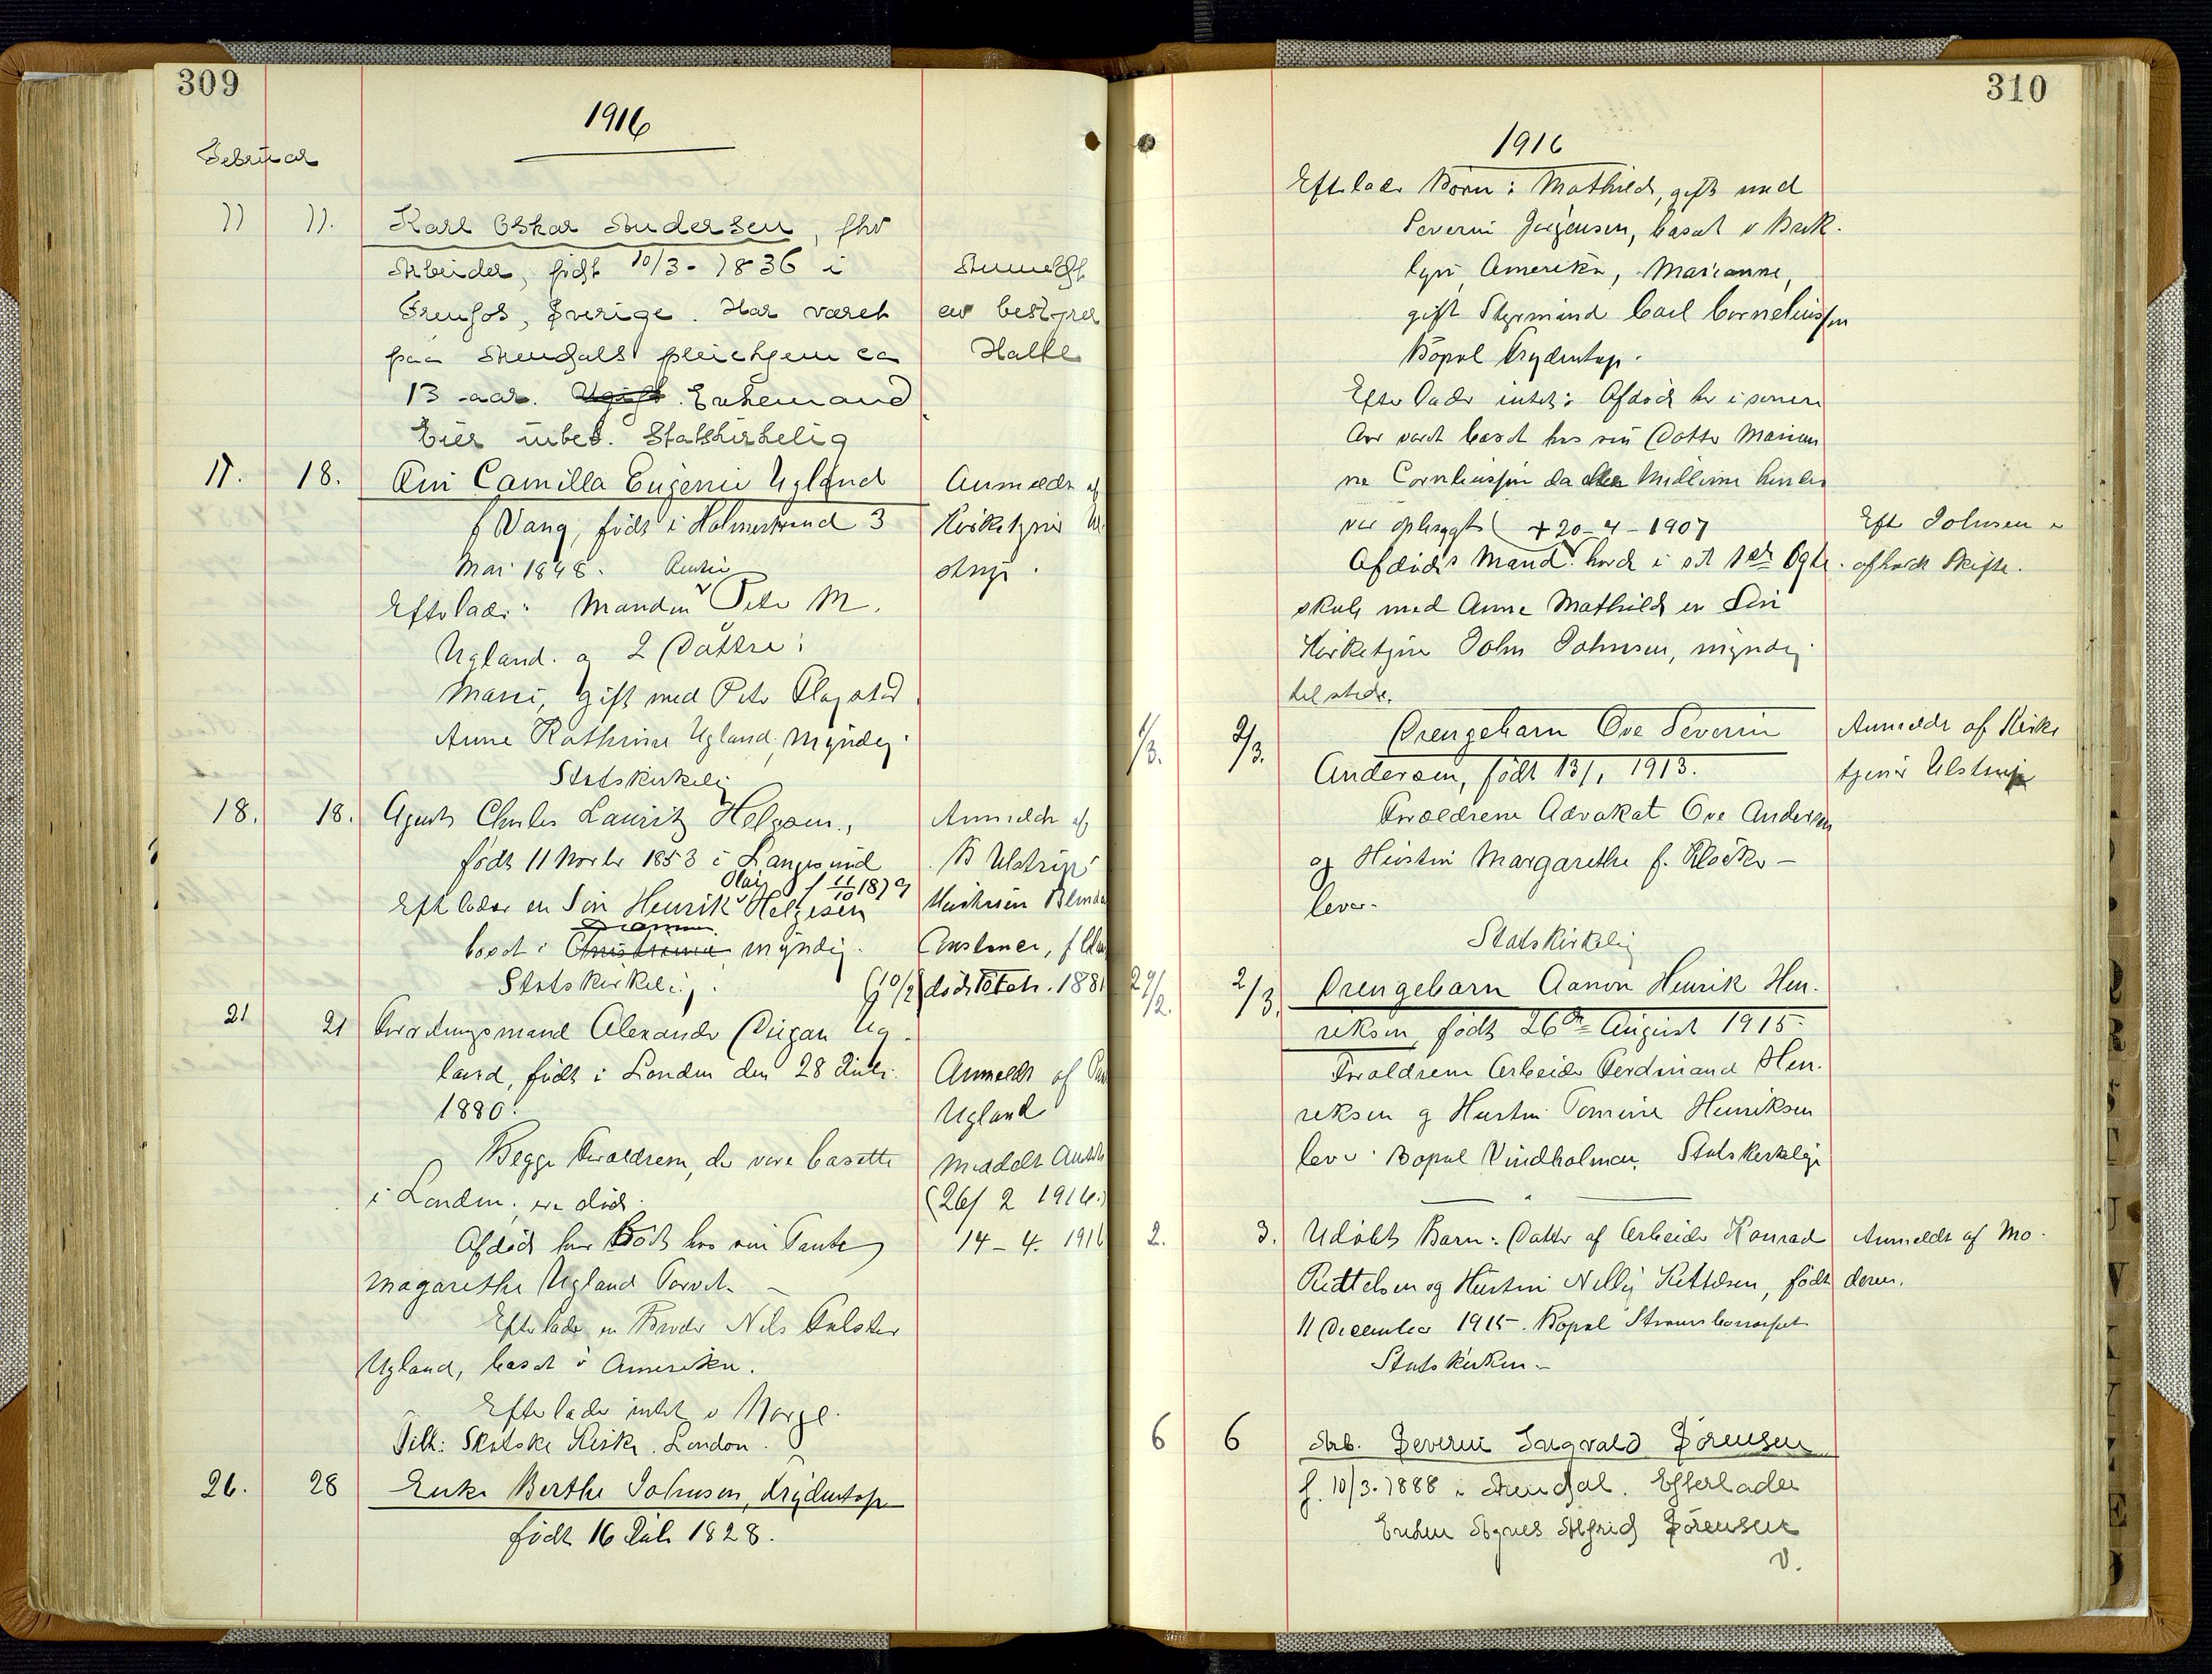 309
1916
Februar
11 11. Karl Oskar Andersen, fhv
Arbeider, født 10/3-1836 i Anmeldt
Sverige. Har været av bestyrer
paa Arendals pleiehjem ca Halle
13 aar. Ugift. Enkemand
Eier intet. Statskirkelig
17. 18. Fru Camilla Eugenie Ugland Anmeldt af
f Vang, født i Holmestrand 3 Kirketjener
Mai 1848. Rentier
Efterlader: Manden Peter M.
Ugland. og 2 Døttre:
Marie, gift med Peter Flagstad
Anne Kathrine Ugland, myndig.
Statskirkelig
18. 18. Agent Charles Lauritz Helgesen, Anmeldt af
født 11 Novbr 1853 i Langesund B Ulstrup
Olai f 11/10 1879
Efterlader en Søn Henrik Helgesen Hustruen
Drammen
bosat i Christiania myndig.
Statskirkelig. død Febr. 1881
21 21 Forretningsmand Alexander Ug-
land, født i London den 28 Juli Anmeldt af
1880. Ugland
Begge Forældrene, der vare bosatte Meddelt
i London, ere død. (26/2 1916.)
Afdød har Bodt hos sin Tante 14-4. 1916
Magarethe Ugland Torvet.
Efterlader en Broder Nils
Ugland, bosat i Amerika.
Efterlader intet i Norge.
Tilh: Skotske Kirke. London.
26. 28 Enke Berthe Johnsen, Frydentop
født 16 Juli 1828.
310
1916
Efterlader Børn: Mathilde, gift med
Severin Jørgensen, bosat i Brok-
lyn Amerika, Marianne,
gift Styrmand Carl Corneliussen
Bopæl Frydentop.
Efterlader intet: Afdød har i senere
Aar været bosat hos sin Datter Marian
ne Corneliussen da Midlerne hendes
var opbrugte ( + 20-4-1907 Eft Johnsen er
Afdødes Mand havde i sit 1ste Egte- afholdt Skifte.
skab med Anne Mathilde en Søn
Kirketjener John Johnsen, myndig
tilstede.
1/3. 2/3. Drengebarn Ove Severin Anmeldt af Kirke
Andersen, født 13/1 1913. tjener Ulstrup
Forældrene Advokat Ove Andersen
og Hustru Margarethe f. Kløcker
lever.
Statskirkelig
29/2. 2/3. Drengebarn Aanon Henrik Hen-
riksen, født 26de August 1915.
Forældrene Arbeider Ferdinand Hen-
reksen og Hustru Tomine Henriksen
lever. Bopæl Vindholmen. Statskirkelige
2. 3. Udøbt Barn: Datter af Arbeider Konrad Anmeldt af Mo-
Kittelsen og Hustru Nelly Kittelsen, født deren.
11 December 1915. Bopæl Strømsbo
Statskirken.
6 6 Arb. Severin Ingvald Sørensen
f. 10/3-1888 i Arendal. Efterlader
Enken Agnes Alfrid Sørensen
v.